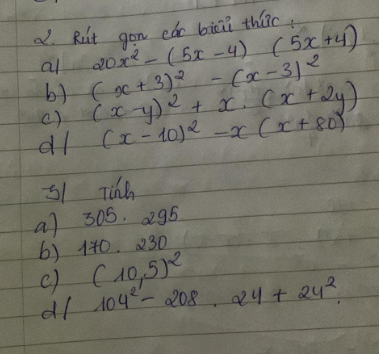 2. Rút gọn các biểu thức:
a) 20x² - (5x - 4) (5x + 4)
b) (x + 3)² - (x - 3)²
c) (x - y)² + x. (x + 2y)
d) (x - 10)² - x (x + 80)
3) Tính
a) 305. 295
b) 170. 230
c) (10,5)²
d) 104² - 208. 24 + 24².